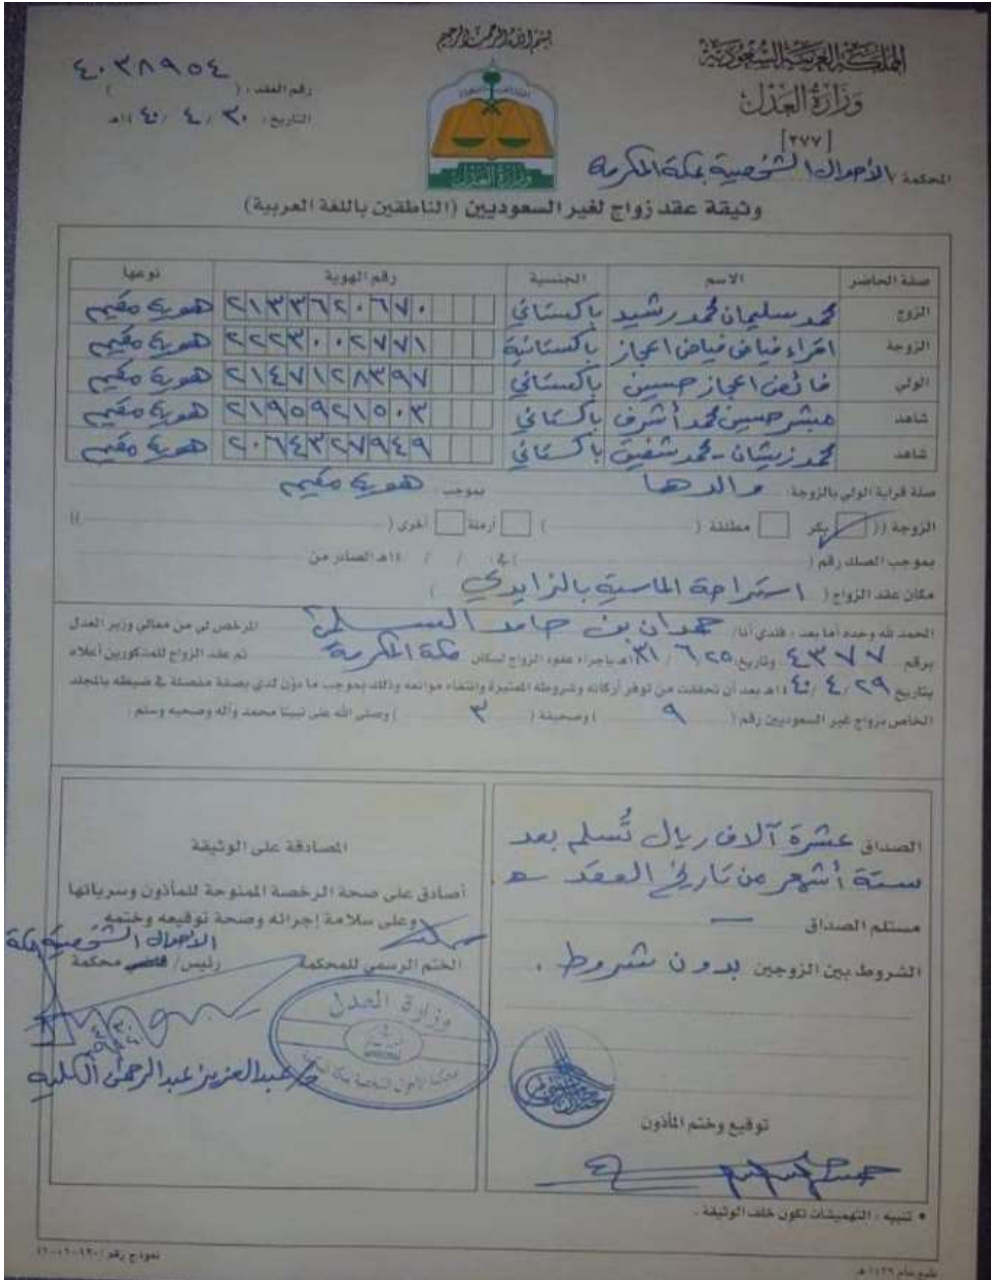 بسم الله الرحمن الرحيم
المملكة العربية السعودية
وزارة العدل
[٢٧٧]
المحكمة: الأحوال الشخصية بمكة المكرمة
وزارة العدل
رقم العقد: (٤٠٣٨٩٥٤)
التاريخ: ٣٠ / ٤ / ١٤٤٠هـ
وثيقة عقد زواج لغير السعوديين (الناطقين باللغة العربية)
صفة الحاضر الاسم الجنسية رقم الهوية نوعها
الزوج محمد سليمان محمد رشيد باكستاني ٢١٣٣٦٢٠٦٧٠ هوية مقيم
الزوجة اقراء فياض فياض اعجاز باكستانية ٢٢٢٣٠٠٢٧٧١ هوية مقيم
الولي فائض اعجاز حسين باكستاني ٢١٤٧١٢٨٣٩٧ هوية مقيم
شاهد مبشر حسين محمد أشرف باكستاني ٢١٩٥٩٢١٥٠٣ هوية مقيم
شاهد محمد زيشان - محمد شفيق باكستاني ٢٠٦٤٣٢٧٩٤٩ هوية مقيم
صفة قرابة الولي بالزوجة: والدها بموجب: هوية مقيم
الزوجة (( بكر مطلقة ( ) أرملة أخرى ( ))
بموجب الصك رقم ( ) في: / / ١٤هـ الصادر من
مكان عقد الزواج ( استراحة الماسية بالزايدي )
الحمد لله وحده أما بعد، فلدي أنا/ حمدان بن حامد السلمي المرخص لي من معالي وزير العدل
برقم ٤٣٧٧ وتاريخ: ٢٥ / ٦ / ١٤٣١هـ بإجراء عقود الزواج لسكان مكة المكرمة تم عقد الزواج للمذكورين أعلاه
بتاريخ ٢٩ / ٤ / ١٤٤٠هـ بعد أن تحققت من توفر أركانه وشروطه المعتبرة وانتفاء موانعه وذلك بموجب ما دون لدي بصفة مفصلة في ضبطه بالمجلد
الخاص بزواج غير السعوديين رقم ( ٩ ) وصحيفة ( ٣ ) وصلى الله على نبينا محمد وآله وصحبه وسلم.
الصداق عشرة آلاف ريال تُسلم بعد
ستة أشهر من تاريخ العقد
مستلم الصداق —
الشروط بين الزوجين بدون شروط.
توقيع وختم المأذون
المصادقة على الوثيقة
أصادق على صحة الرخصة الممنوحة للمأذون وسريانها
وعلى سلامة إجرائه وصحة توقيعه وختمه
الأحوال الشخصية بمكة
الختم الرسمي للمحكمة رئيس/ قاضي محكمة
وزارة العدل
عبدالعزيز عبدالرحمن
• تنبيه: التهميشات تكون خلف الوثيقة.